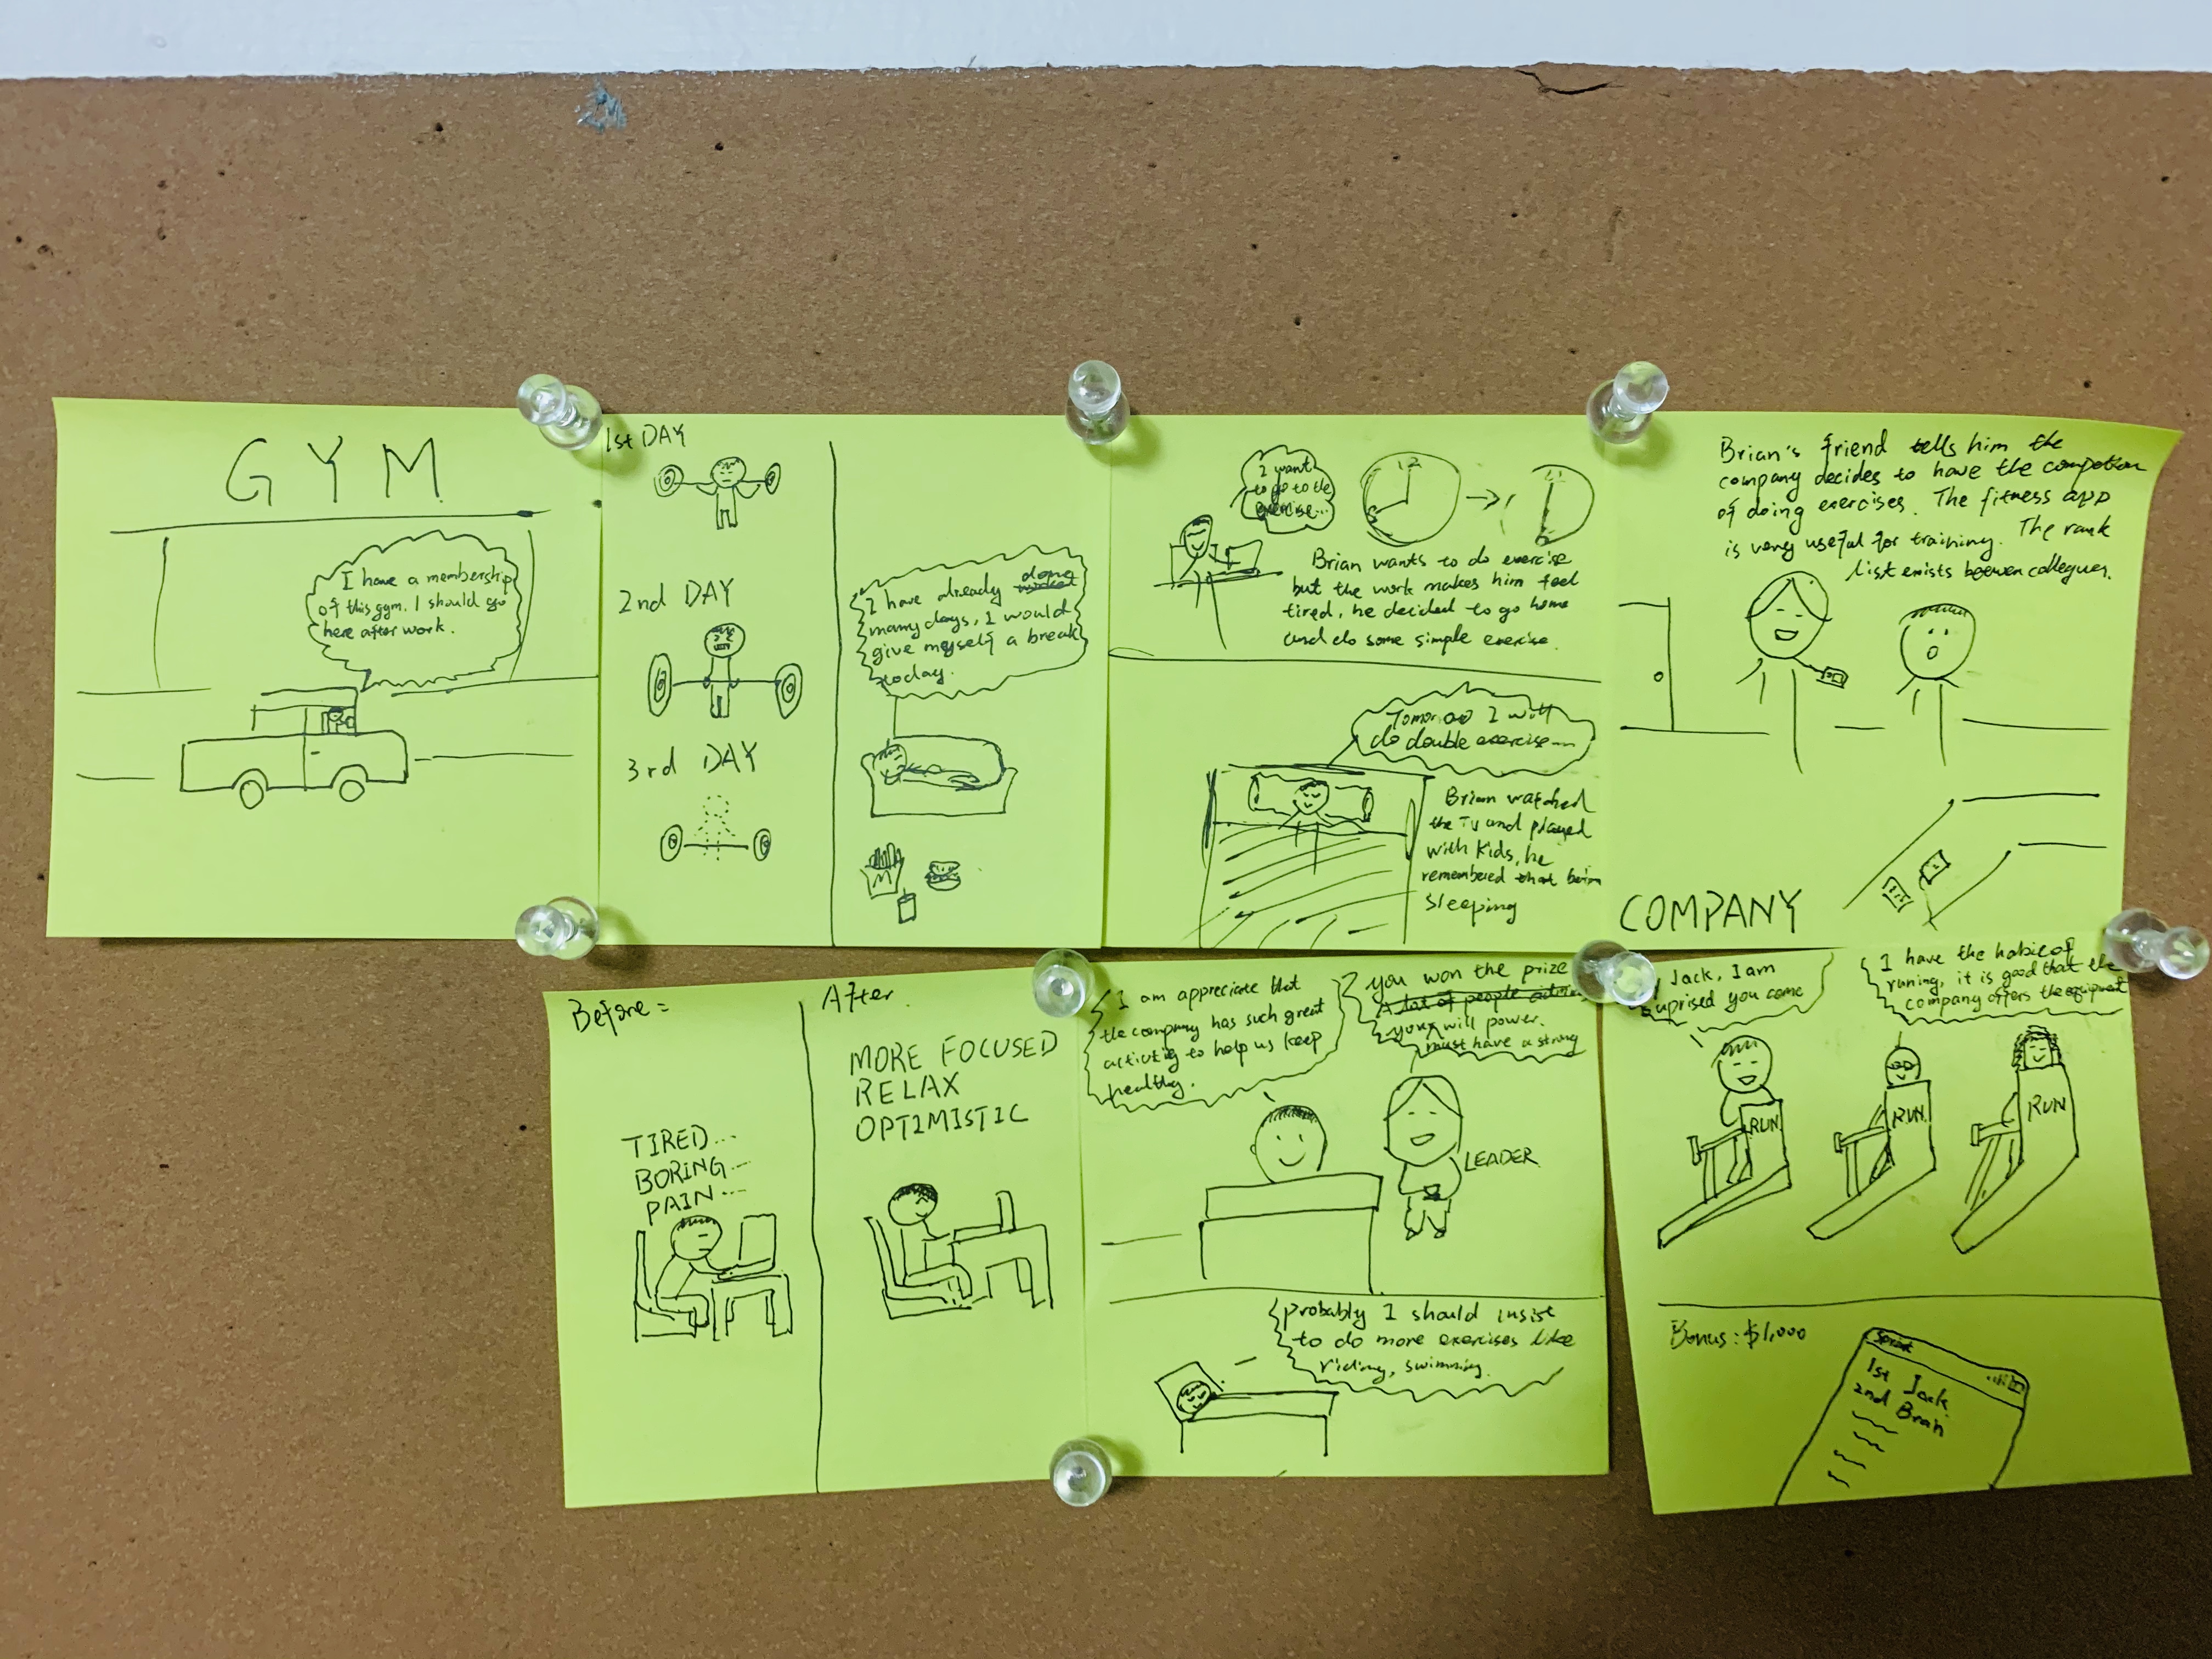 GYM
I have a membership
of this gym. I should go
here after work.
1st DAY
2nd DAY
3rd DAY
I have already done
many days, I would
give myself a break
today.
I want
to go to the
exercise...
12
Brian wants to do exercise
but the work makes him feel
tired, he decided to go home
and do some simple exercise.
I will
do double exercise...
Brian watched
the TV and played
with kids, he
remembered that
sleeping
Brian's friend tells him the
company decides to have the
of doing exercises. The fitness app
is very useful for training. The rank
list exists between collegues.
COMPANY
Before:
TIRED...
BORING...
PAIN...
After
MORE FOCUSED
RELAX
OPTIMISTIC
I am appreciate that
the company has such great
to help us keep
healthy.
you won the prize
A lot of people
your will power.
must have a strong
LEADER
probably I should insist
to do more exercises like
riding, swimming.
Jack, I am
uprised you come
I have the habit of
runing, it is good that the
company offers the
RUN
RUN
RUN
Bonus: $1,000
1st Jack
2nd Brian